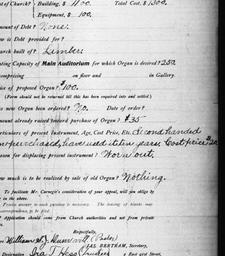 of Church? { Building, $ 1100. Total Cost, $ 1300.
Equipment, $ 100.
ount of Debt? None.
ow is Debt provided for?
urch built of? Timber
ating Capacity of Main Auditorium for which Organ is desired? 250
omprising on floor and in Gallery.
ice of proposed Organ? $100.
(Form should not be returned till this has been inquired into and settled.)
s new Organ been ordered? No. Date of order?
mount already raised toward purchase of Organ? $35
articulars of present Instrument, Age, Cost Price, Etc. Second handed
purchased, have used it ten years. Cost price
ason for displacing present instrument? Worn out.
ow much is to be realized by sale of old Organ? Nothing.
To facilitate Mr. Carnegie's consideration of your appeal, will you oblige by
in the above.
Precise answer to each question is necessary. The
correspondence to be filed.
Application should come from Church authorities and not from private
Respectfully,
(Pastor)
JAS. BERTRAM, Secretary,
Designation
East 91st Street,